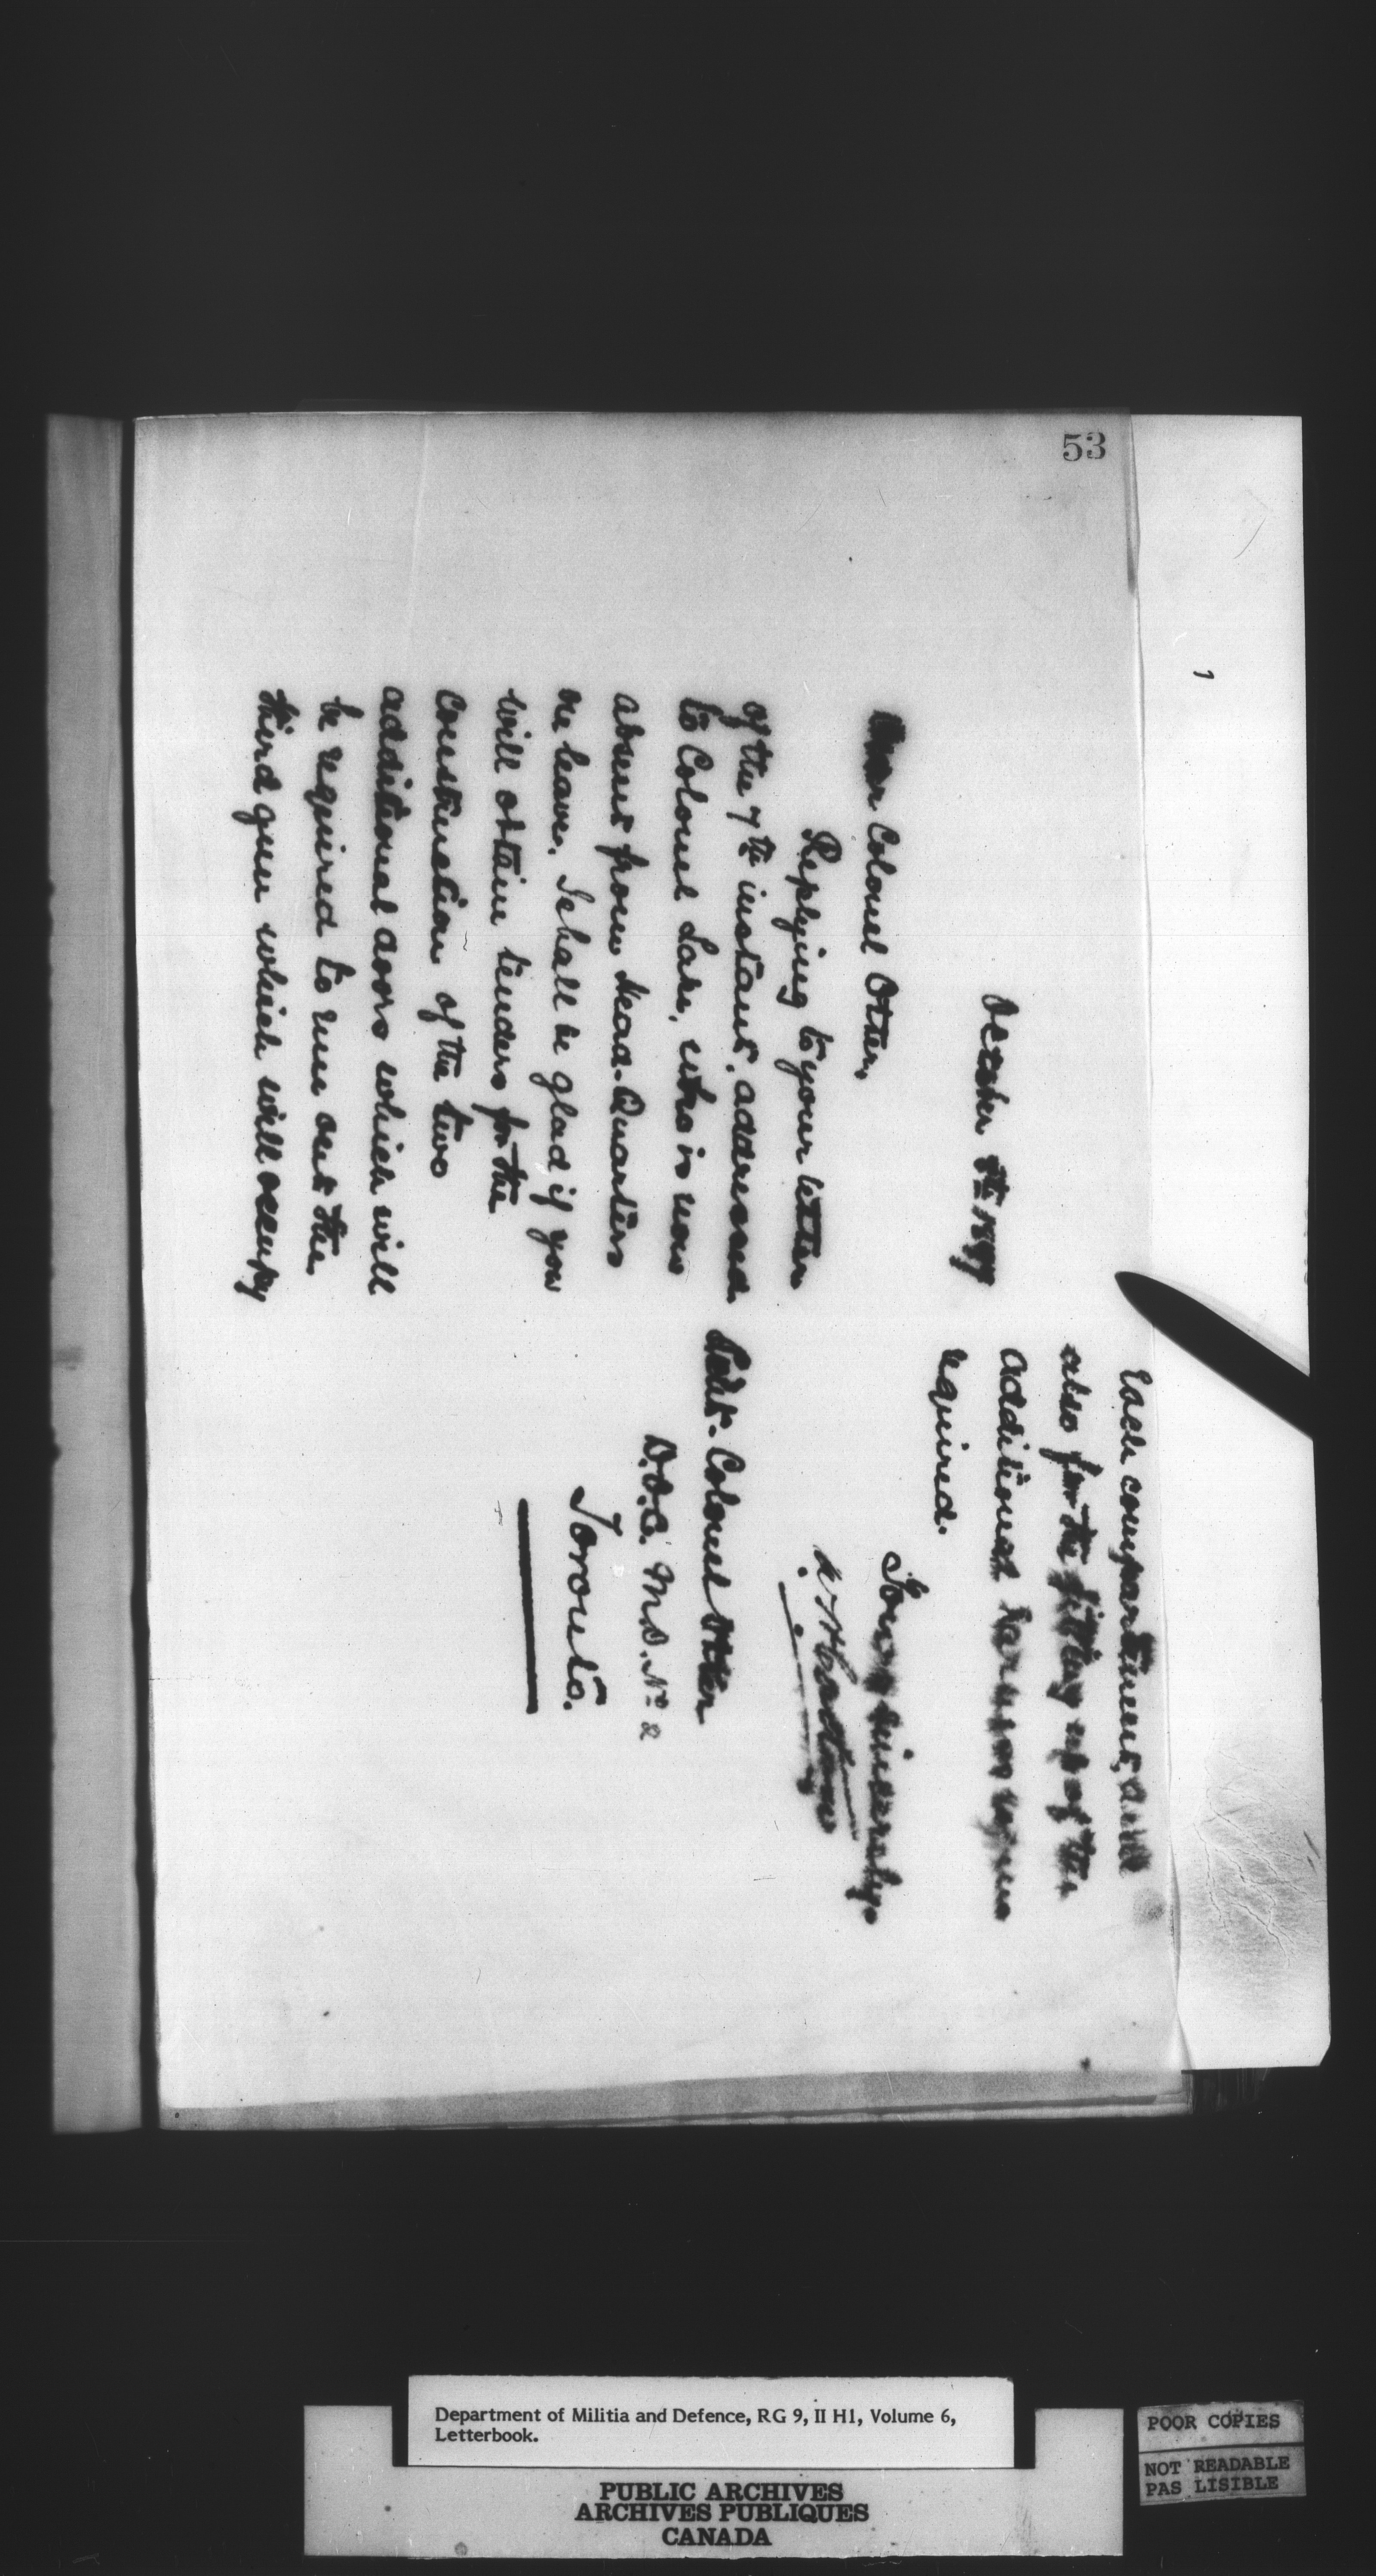 53
October 8th 1897
Dear Colonel Otter,
Replying to your letter
of the 7th instant, addressed
to Colonel Lake, who is now
absent from Head-Quarters
on leave, I shall be glad if you
will obtain tenders for the
construction of the two
additional doors which will
be required to run out the
third gun which will occupy
each compartment, and
also for the fitting up of the
additional harness
required.
Yours sincerely,
Lieut-Colonel Otter
D.O.C. M.D. No 2
Toronto.
Department of Militia and Defence, RG 9, II H1, Volume 6,
Letterbook.
PUBLIC ARCHIVES
ARCHIVES PUBLIQUES
CANADA
POOR COPIES
NOT READABLE
PAS LISIBLE